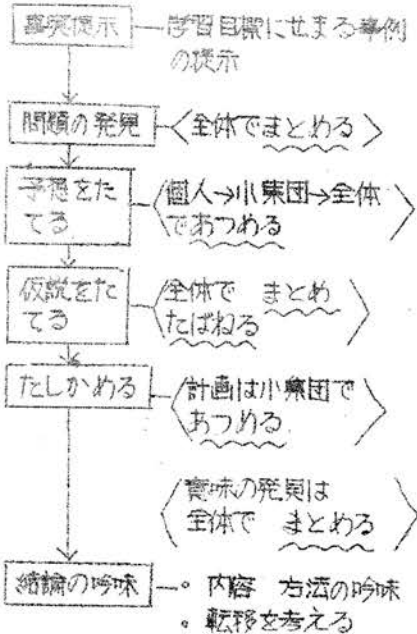 事実提示 学習目標にせまる事例
の提示
問題の発見 〈全体でまとめる〉
予想をた
てる
〈個人→小集団→全体
であつめる〉
仮説をた
てる
〈全体で まとめ
たばねる〉
たしかめる 〈計画は小集団で
あつめる〉
〈意味の発見は
全体で まとめる〉
結論の吟味 ・内容 方法の吟味
・転移を考える